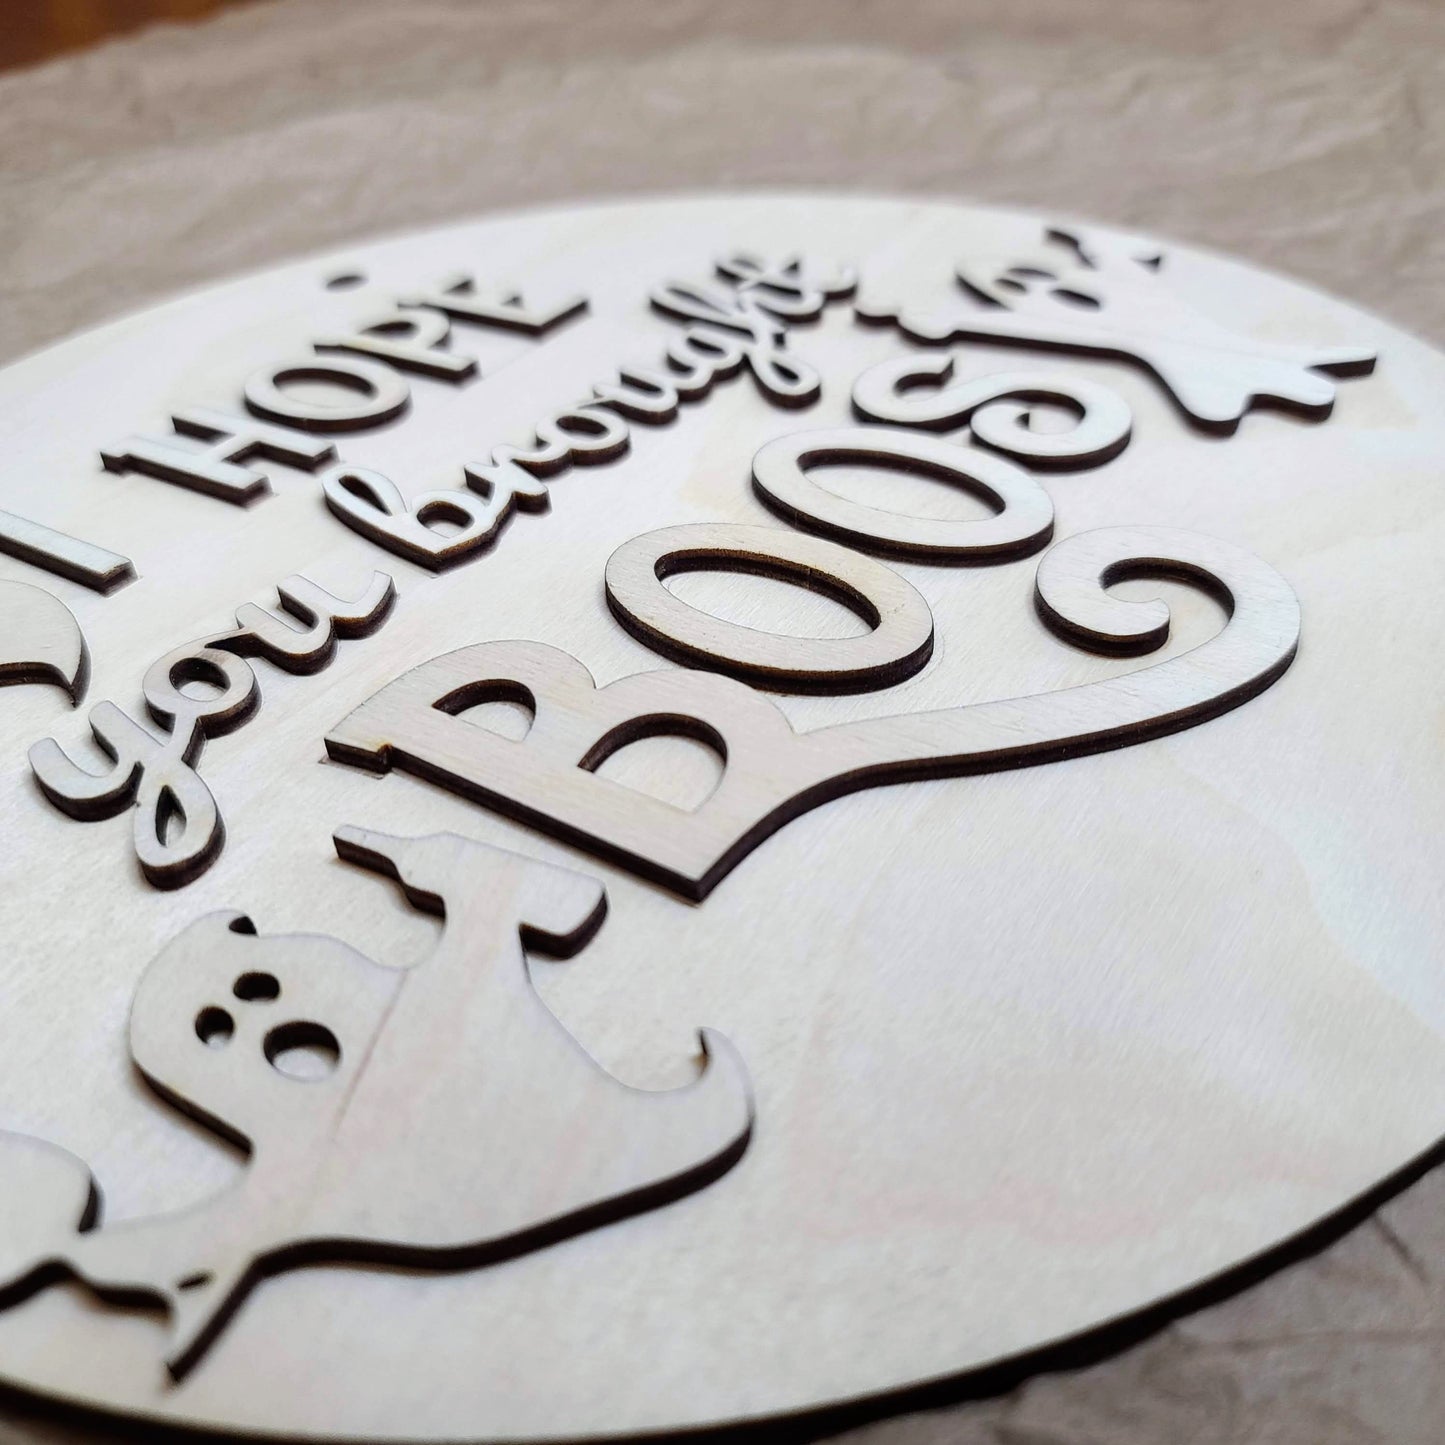 I HOPE
you brought
BOOS